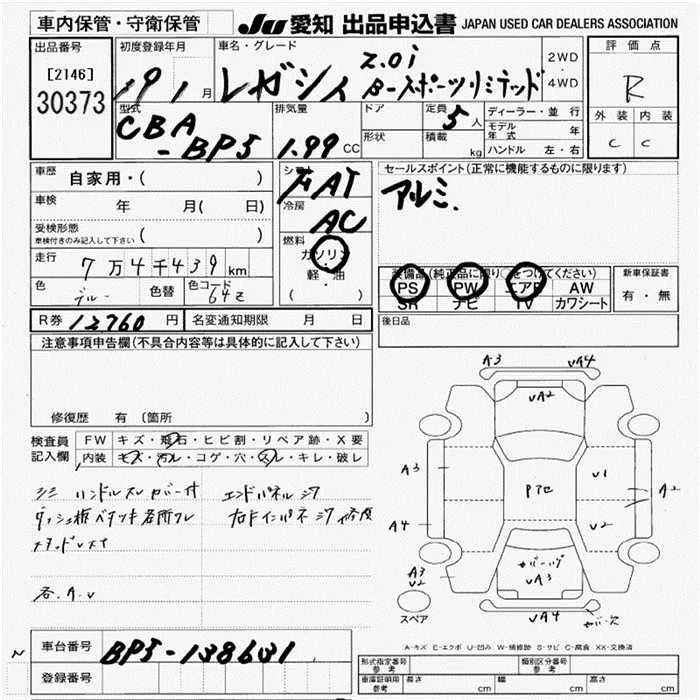 車内保管・守衛保管
JU 愛知 出品申込書 JAPAN USED CAR DEALERS ASSOCIATION
出品番号
[2146]
30373
初度登録年月
19 1 月
車名・グレード
レガシィ
2.0i
B-スポーツリミテッド
2WD
4WD
評価点
R
外装 内装
C C
型式
CBA
-BP5
排気量
1.99 CC
ドア
形状
定員
5 人
積載
kg
ディーラー・並行
モデル年式 年
ハンドル 左・右
車歴
自家用・( )
車検
年 月( 日)
受検形態
車検付きのみ記入して下さい ( )
走行
7万4千439km
色
ブルー
色替
色コード
64Z
シフト
FAT
冷房
AC
燃料
ガソリン
軽・油
( )
セールスポイント(正常に機能するものに限ります)
アルミ.
装備品(純正品に限り○をつけてください)
PS PW エアB AW
SR ナビ TV カワシート
新車保証書
有・無
R券 12760 円
名変通知期限 月 日
後日品
注意事項申告欄(不具合内容等は具体的に記入して下さい)
修復歴 有 (箇所
検査員
記入欄
FW キズ・飛石・ヒビ割・リペア跡・X要
内装 キズ・汚レ・コゲ・穴・スレ・キレ・破レ
ハンドルスレ カバー付
エンドパネル
ダッシュ板ベタツキ
各.A.U
A3
UA4
UA2
A3
U1
A2
A4
U2
A3
U2
UA3
UA4
スペア
A-キズ E-エクボ U-凹み W-補修跡 S-サビ C-腐食 XX-交換済
N
車台番号
BP5-138631
登録番号
形式指定番号
参考
類別区分番号
参考
車庫証明用
参考
長さ cm
幅 cm
高さ cm